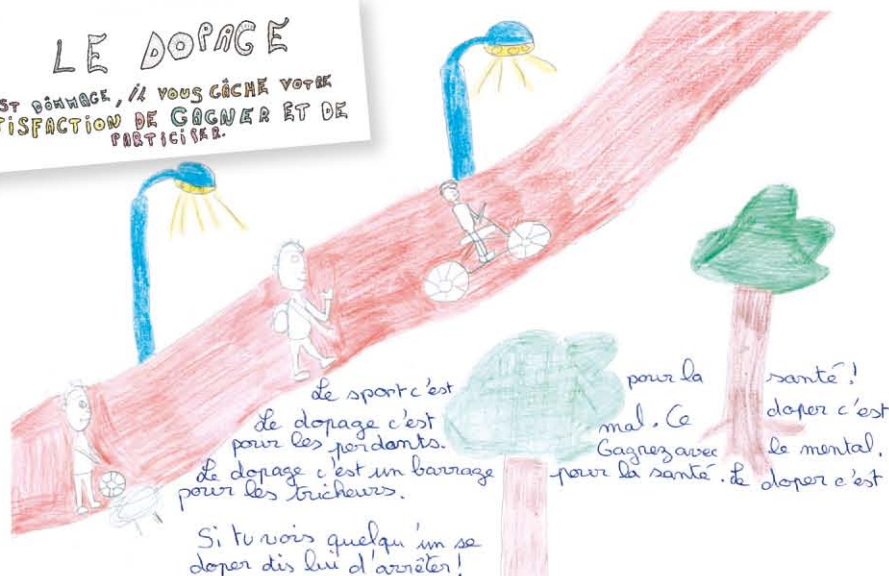 LE DOPAGE
ST DÔMMAGE, IL VOUS GÂCHE VOTRE
TISFACTION DE GAGNER ET DE
PARTICIPER.
Le sport c'est pour la santé !
Le dopage c'est mal. Ce doper c'est
pour les perdants. Gagnez avec le mental.
Le dopage c'est un barrage pour la santé. Le doper c'est
pour les tricheurs.
Si tu vois quelqu'un se
doper dis lui d'arrêter !